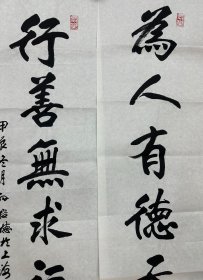 為人有德
行善無求
甲辰冬月
於上海